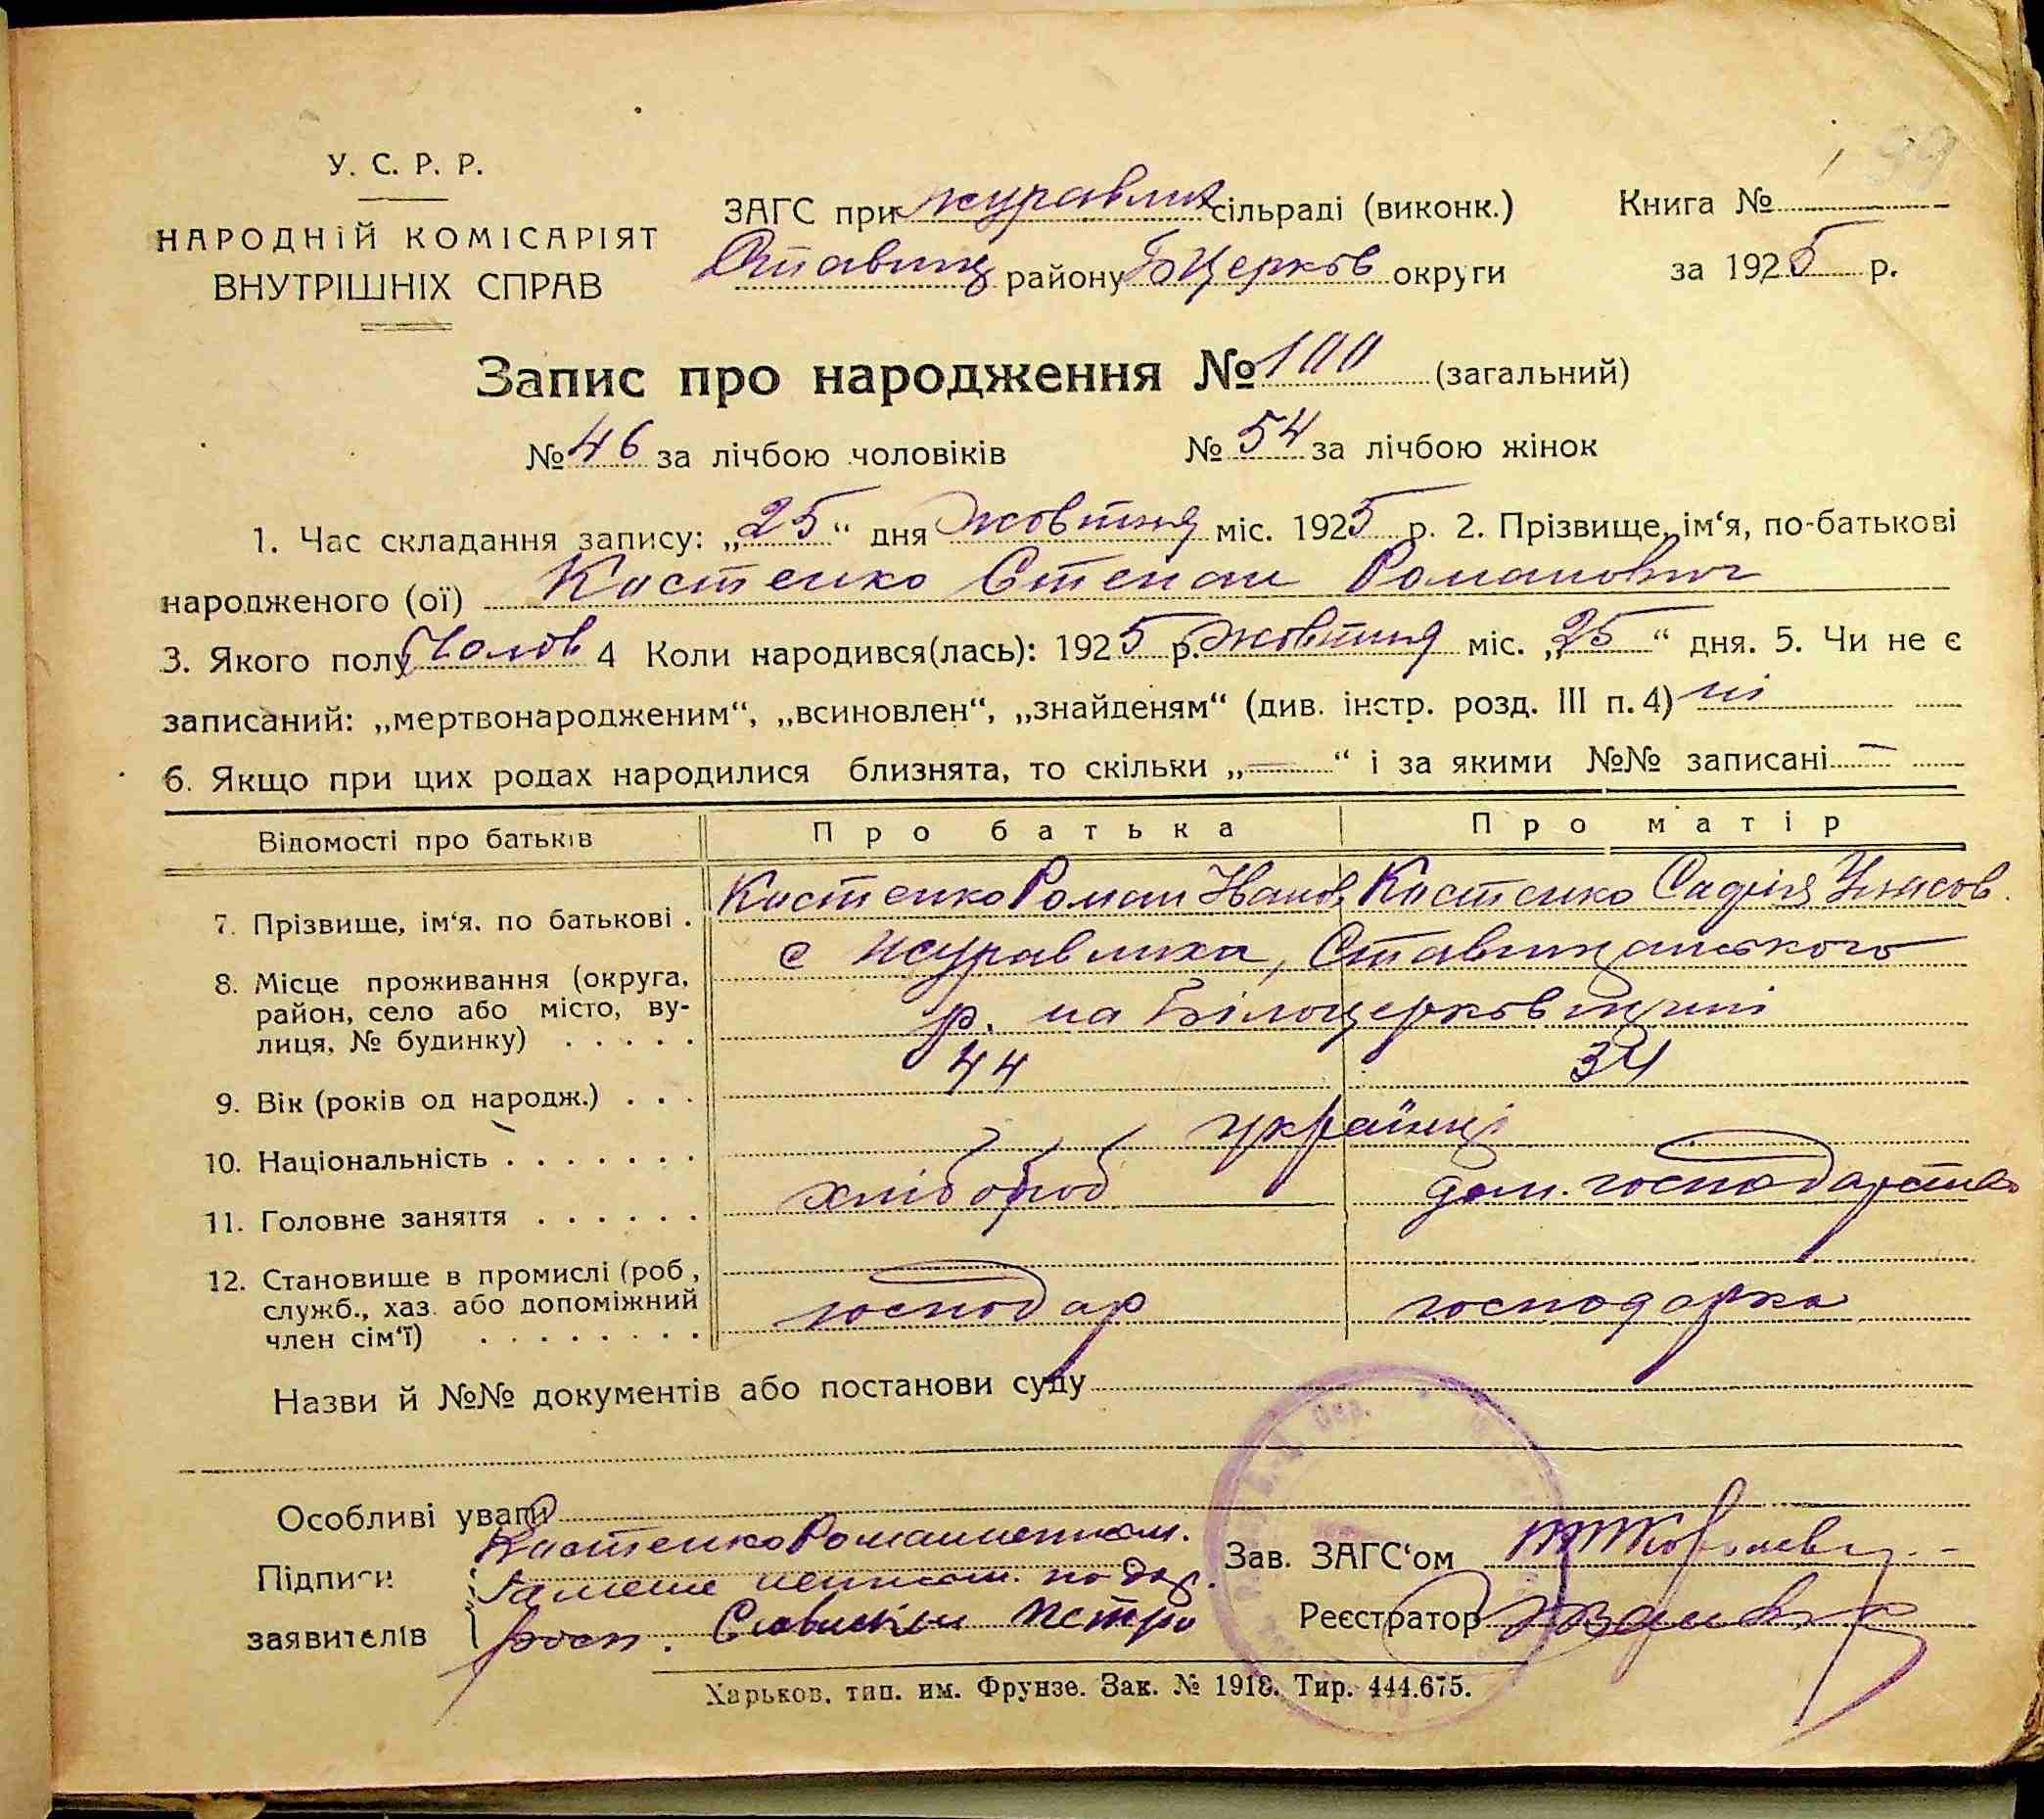 У. С. Р. Р.
НАРОДНІЙ КОМІСАРІЯТ
ВНУТРІШНІХ СПРАВ
ЗАГС при Журавлих сільраді (виконк.)
Ставищ району БЦерков округи
Книга №
за 1925 р.
Запис про народження № 100 (загальний)
№ 46 за лічбою чоловіків № 54 за лічбою жінок
1. Час складання запису: „25“ дня жовтня міс. 1925 р. 2. Прізвище, ім‘я, по-батькові
народженого (ої) Костенко Степан Романович
3. Якого полу Чолов 4 Коли народився(лась): 1925 р. жовтня міс. „25“ дня. 5. Чи не є
записаний: „мертвонародженим“, „всиновлен“, „знайденям“ (див. інстр. розд. III п. 4) ні
6. Якщо при цих родах народилися близнята, то скільки „—“ і за якими №№ записані —
Відомості про батьків Про батька Про матір
7. Прізвище, ім‘я, по батькові . Костенко Роман Іванов Костенко
8. Місце проживання (округа, с Журавлиха, Ставищанського
район, село або місто, ву- р. на Білоцерковщині
лиця, № будинку) . . . . .
9. Вік (років од народж.) . . . 44 34
10. Національність . . . . . . . українці
11. Головне заняття . . . . . . хлібороб дом. господарство
12. Становище в промислі (роб.,
служб., хаз. або допоміжний господар господарка
член сім‘ї) . . . . . . . .
Назви й №№ документів або постанови суду
Особливі уваги
Підписи
заявителів
Костенко Роман неписм.
неписом. по дор.
росп. Петро
Зав. ЗАГС‘ом
Реєстратор
Харьков, тип. им. Фрунзе. Зак. № 1918. Тир. 444.675.